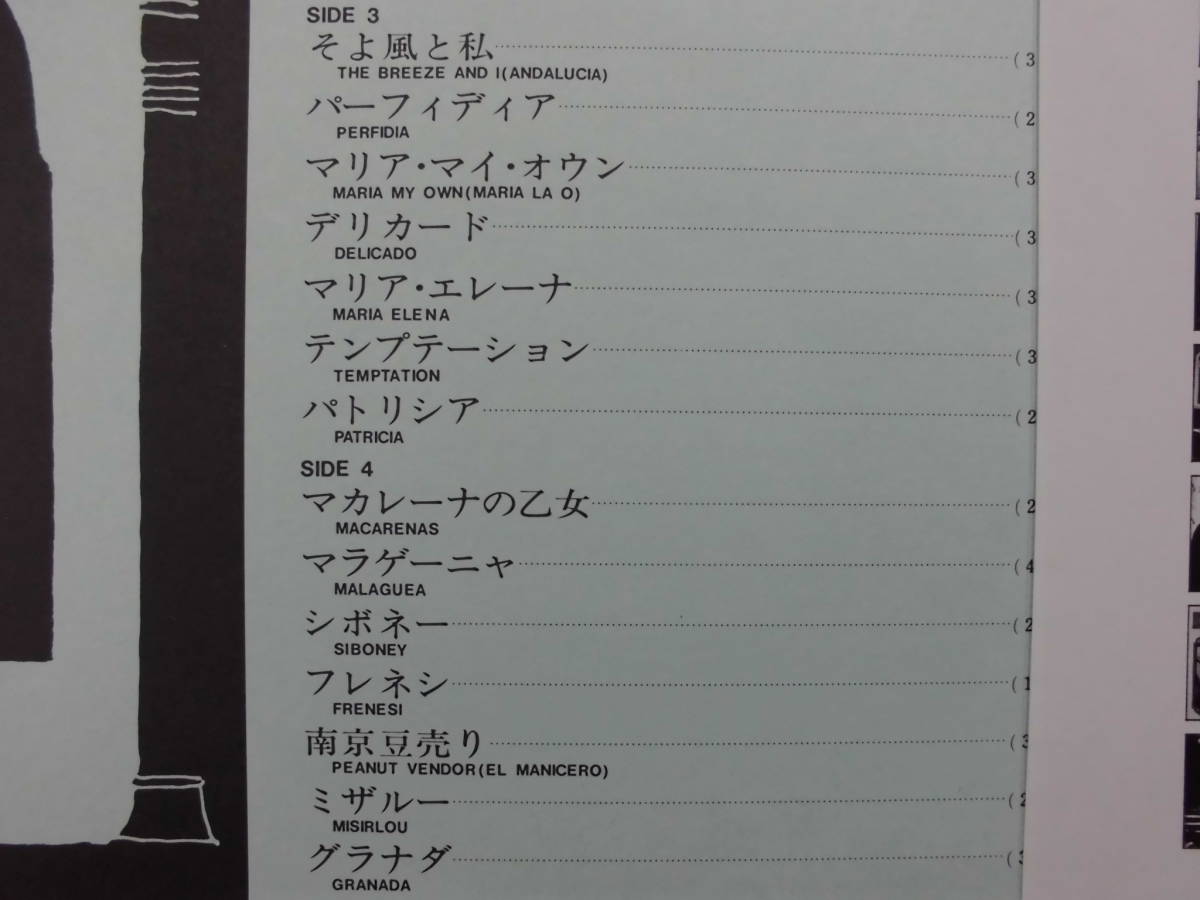 SIDE 3
そよ風と私 (3
THE BREEZE AND I(ANDALUCIA)
パーフィディア (2
PERFIDIA
マリア・マイ・オウン (3
MARIA MY OWN(MARIA LA O)
デリカード (3
DELICADO
マリア・エレーナ (3
MARIA ELENA
テンプテーション (3
TEMPTATION
パトリシア (2
PATRICIA
SIDE 4
マカレーナの乙女 (2
MACARENAS
マラゲーニャ (4
MALAGUEA
シボネー (2
SIBONEY
フレネシ (1
FRENESI
南京豆売り (3
PEANUT VENDOR(EL MANICERO)
ミザルー (2
MISIRLOU
グラナダ (3
GRANADA